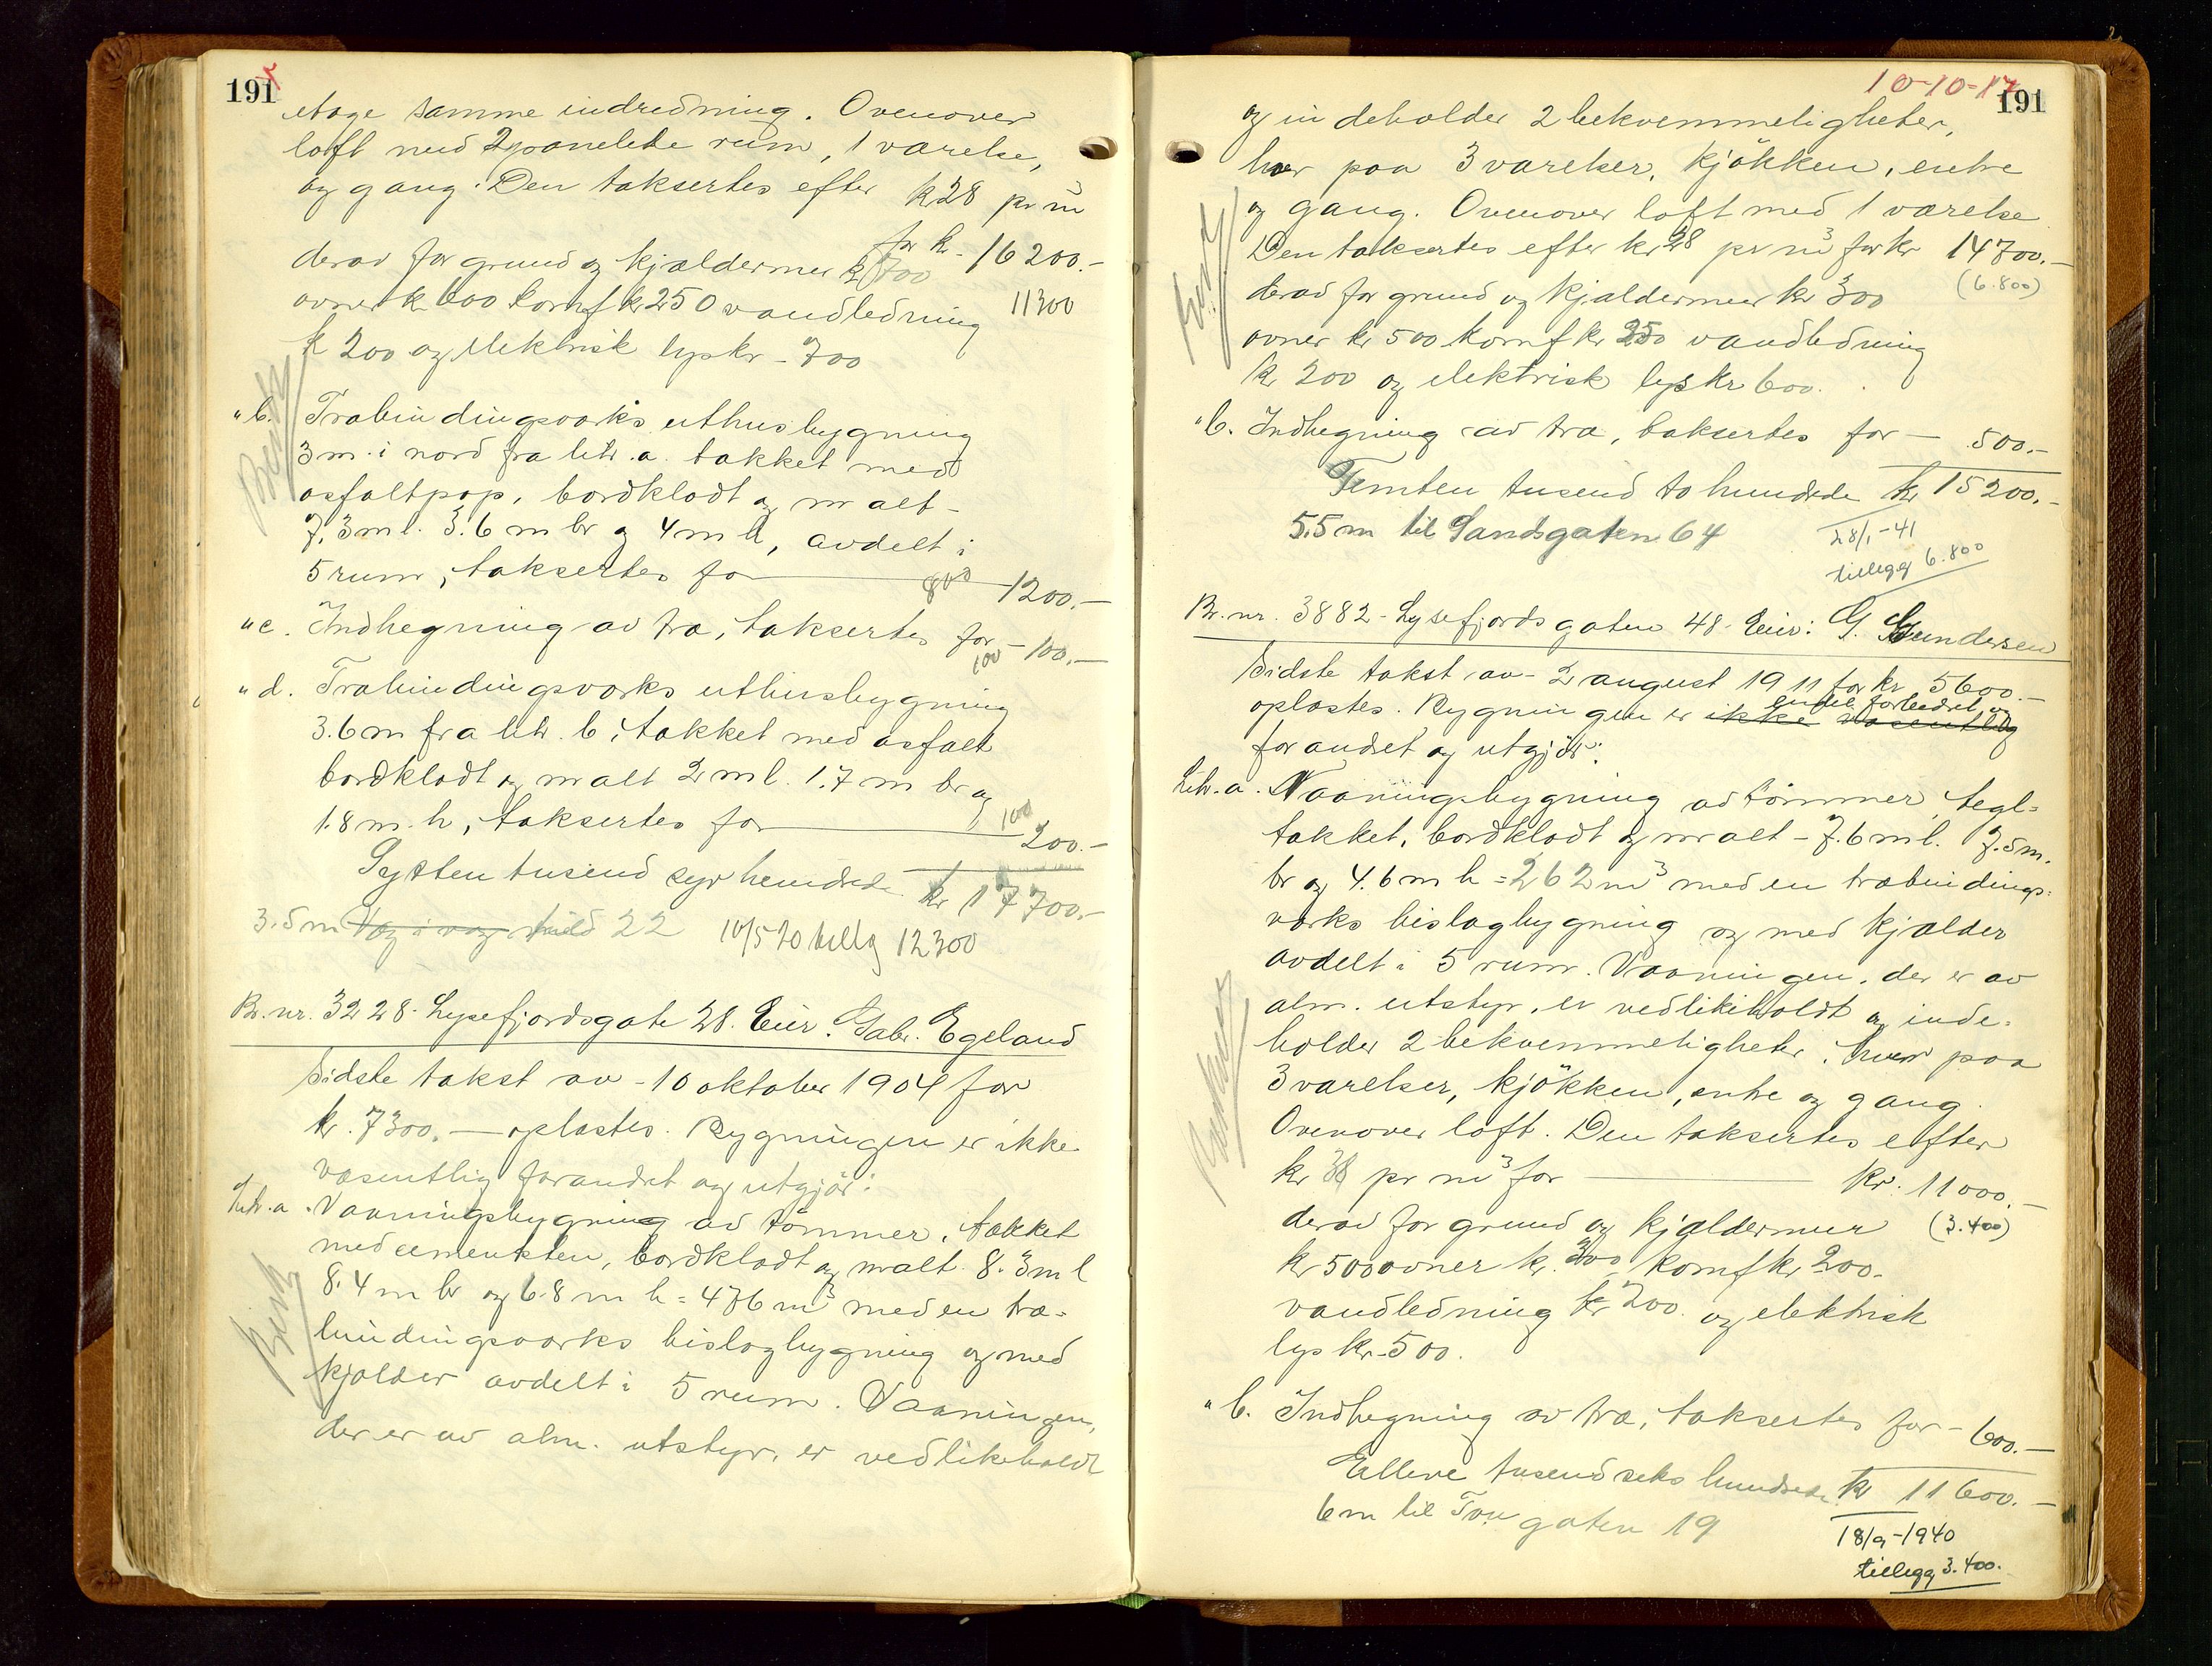 191
etage samme indredning. Ovenover
loft med 2 panelede rum, 1 værelse,
og gang. Den taksertes efter kr 28 pr m
for kr. 16200.-
derav for grund og kjældermur kr 700
ovner kr 600 komf kr 250 vandledning 11300
kr 200 og elektrisk lys kr - 700
" b. Træbindingsværks uthusbygning
3 m. i nord fra litr. a. tækket med
asfaltpap, bordklædt og malt -
7,3 m l. 3.6 m br og 4 m h, avdelt i
5 rum, taksertes for 800 1200.-
" c. Indhegning av træ, taksertes for - 100.-
100
" d. Træbindingsværks uthusbygning
3.6 m fra litr. b, tækket med asfalt
bordklædt og malt 2 m l. 1.7 m br og
1.8 m. h, taksertes for 100 200.-
Sytten tusend syv hundrede kr 17700.-
3.5 m 22 10/5 20 tillæg 12300
Br. nr. 3228 - Lysefjordsgate 28. Eier: Gabr. Egeland
Sidste takst av - 10 oktober 1904 for
kr. 7300.- oplæstes. Bygningen er ikke
væsentlig forandret og utgjør:
Litr. a. Vaaningsbygning av tømmer, tækket
med cementsten, bordklædt og malt 8.3 m l
8.4 m br og 6.8 m h = 476 m³ med en træ-
bindingsværks bislagbygning og med
kjælder avdelt i 5 rum. Vaaningen,
der er av alm. utstyr, er vedlikeholdt
10-10-17
191
og indeholder 2 bekvemmeligheter,
hver paa 3 værelser, kjøkken, entre
og gang. Ovenover loft med 1 værelse
Den taksertes efter kr 28 pr m³ for kr 14700.-
derav for grund og kjældermur kr 300 (6.800)
ovner kr 500 komf kr 250 vandledning
kr 200 og elektrisk lys kr 600.
" b. Indhegning av træ, taksertes for - 500.-
Femten tusend to hundrede kr 15200.-
5.5 m til Sandsgaten 64 28/1-41
tillegg 6.800
Br. nr. 3882 - Lysefjordsgaten 48. Eier: G. Gundersen
Sidste takst av - 2 august 1911 for kr 5600.-
endel forbedret, og
oplæstes. Bygningen er ikke væsentlig
forandret og utgjør:
Litr. a. Vaaningsbygning av tømmer, tegl-
tækket, bordklædt og malt - 7.6 m l. 7.5 m.
br og 4.6 m h = 262 m³ med en træbindings-
værks bislagbygning og med kjælder
avdelt i 5 rum. Vaaningen, der er av
alm. utstyr, er vedlikeholdt og inde-
holder 2 bekvemmeligheter, hver paa
3 værelser, kjøkken, entre og gang.
Ovenover loft. Den taksertes efter
kr 38 pr m³ for kr. 11000.-
derav for grund og kjældermur (3.400)
kr 500 ovner kr. 300 komf kr 200.
vandledning kr 200. og elektrisk
lys kr. 500.
" b. Indhegning av træ, taksertes for - 600.-
Elleve tusend seks hundrede kr 11600.-
6 m til Tou gaten 19
18/9-1940
tillegg 3.400.